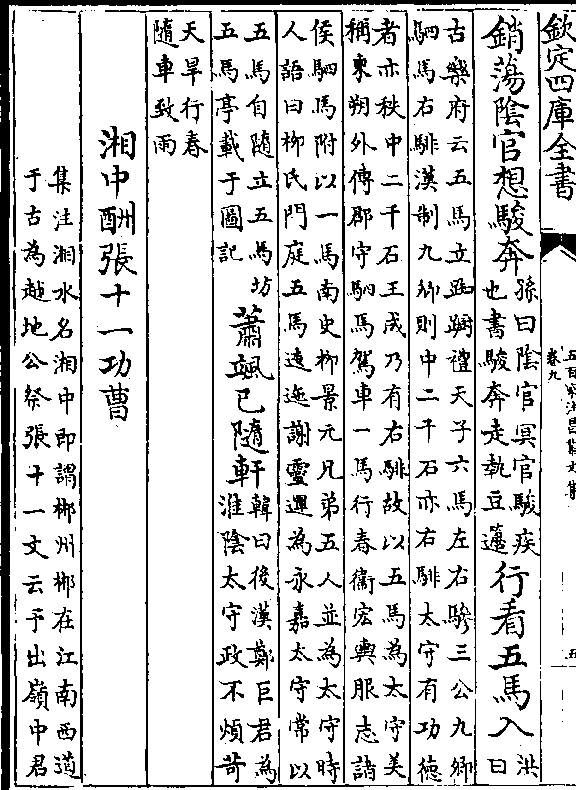 欽定四庫全書
五百家注昌黎文集
卷九
五
銷蕩陰官想駿奔
孫曰陰官冥官駿疾
也書駿奔走執豆籩
行看五馬入
洪
曰
古樂府云五馬立踟躕禮天子六馬左右驂三公九卿
駟馬右騑漢制九卿則中二千石亦右騑太守有功德
者亦秩中二千石王成乃有右騑故以五馬為太守美
稱東朔外傳郡守駟馬駕車一馬行春衞宏輿服志諸
侯駟馬附以一馬南史柳景元兄弟五人並為太守時
人語曰柳氏門庭五馬逶迤謝靈運為永嘉太守常以
五馬自隨立五馬坊
五馬亭載于圖記
蕭颯已隨軒
韓曰後漢鄭巨君為
淮陰太守政不煩苛
天旱行春
隨車致雨
湘中酬張十一功曹
集注湘水名湘中即謂郴州郴在江南西道
于古為越地公祭張十一文云予出嶺中君